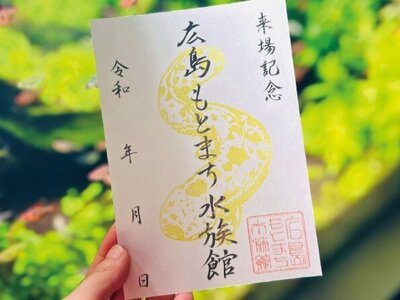 来場記念
広島もとまち水族館
令和　年　月　日
広島
もとまち
水族館